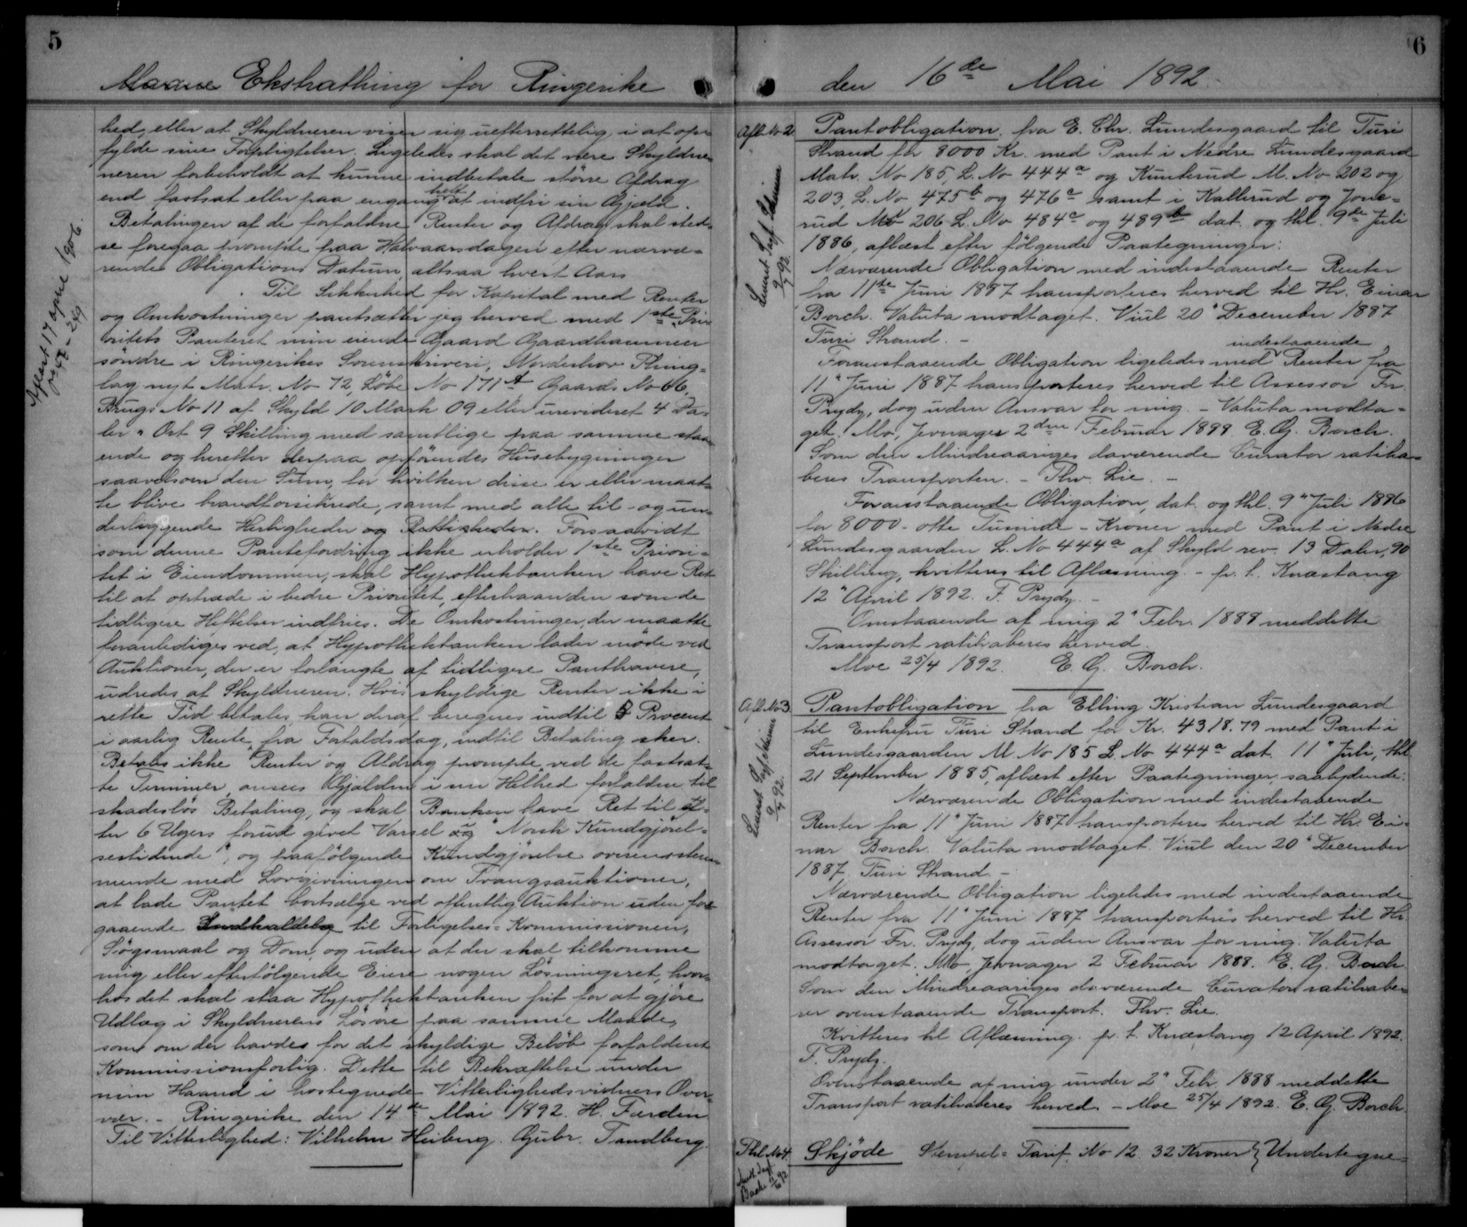 5
Maane Ekstrathing for Ringerike
hed, eller at Skyldneren viser sig uefterrettelig i at op-
fylde sine Forpligtelser. Ligeledes skal det være Skyldne-
neren forbeholdt at kunne indbetale større Afdrag
end fastsat eller paa engang helt at indfri sin Gjæld.
Betalingen af de forfaldne Renter og Afdrag skal sted-
se foregaa prompte paa Halvaarsdagen efter nærvæ-
rende Obligations Datum altsaa hvert Aars
Til Sikkerhed for Kapital med Renter
og Omkostninger pantsætter jeg herved med 1ste Pri-
oritets Panteret min eiende Gaard Gaardhammer
søndre i Ringerikes Sorenskriveri, Norderhov Thing-
lag nyt Matr. No 72, Løbe No 171 A Gaards No 66,
Brugs No 11 af Skyld 10 Mark 09 eller urevideret 4 Da-
ler " Ort 9 Skilling med samtlige paa samme staa-
ende og herefter derpaa opførendes Husebygninger
saavelsom den Sum, for hvilken disse er eller maat-
te blive brandforsikrede, samt med alle til- og un-
derliggende Herligheder og Rettigheder. Forsaavidt
som denne Pantefordring ikke erholder 1ste Priori-
tet i Eiendommen, skal Hypothekbanken have Ret
til at optræde i bedre Prioritet, efterhaanden som de
tidligere Heftelser indfries. De Omkostninger, der maatte
foranlediges ved, at Hypothekbanken lader møde ved
Auktioner, der er forlangte af tidligere Panthavere,
udredes af Skyldneren. Hvis skyldige Renter ikke i
rette Tid betales, kan deraf beregnes indtil 5 Procent
i aarlig Rente fra Forfaldsdag, indtil Betaling sker.
Betales ikke Renter og Afdrag prompte ved de fastsat-
te Terminer, ansees Gjælden i sin Helhed forfalden til
skadesløs Betaling, og skal Banken have Ret til ef-
ter 6 Ugers forud givet Varsel og Norsk Kundgjørel-
sestidende", og paafølgende Kundgjørelse overensstem-
mende med Lovgivningen om Tvangsauktioner,
at lade Pantet bortsælge ved offentlig Auktion uden fore-
gaaende til Forligelses-Kommissionen,
Søgsmaal og Dom, og uden at der skal tilkomme
mig eller efterfølgende Eiere nogen Løsningsret, hvor-
hos det skal staa Hypothekbanken frit for at gjøre
Udlæg i Skyldnerens Løsøre paa samme Maade,
som om der havdes for det skyldige Beløb forfaldent
Kommissionsforlig. Dette til Bekræftelse under
min Haand i hostegnede Vitterlighedsvidners Over-
vær. - Ringerike den 14de Mai 1892. H. Færden
Til Vitterlighed: Vilhelm Heiberg. Gubr. Tandberg.
Aflæst 17 april 1906.
6
den 16de Mai 1892.
Afl. No 2
Pantobligation fra E. Chr. Lundesgaard til Turi
Strand for 8000 Kr. med Pant i Nedre Lundesgaard
Matr. No 185, L. No 444a og Kunterud M. No 202 og
203, L. No 475b og 476a samt i Kallerud og Jone-
rud M 206 L. No 484a og 489b dat. og thl. 9de Juli
1886, aflæst efter følgende Paategninger:
Nærværende Obligation med indestaaende Renter
fra 11te Juni 1887 transporteres herved til Hr. Einar
Borch. Valuta modtaget. Viul 20" December 1887
Turi Strand. -
Foranstaaende Obligation ligeledes med indestaaende Renter fra
11" Juni 1887 transporteres herved til Assessor Fr.
Prydz, dog uden Ansvar for mig. - Valuta modta-
get. Mo, Jevnager 2den Februar 1888 E. G. Borch.
Som den Mindreaariges daværende Curator ratiha-
beres Transporten. - Thv. Lie. -
Foranstaaende Obligation, dat. og thl. 9" Juli 1886
for 8000 - otte Tusinde - Kroner med Pant i Nedre
Lundesgaarden L. No 444a af Skyld rev. 13 Daler, 90
Skilling, kvitteres til Aflæsning - p. t. Knæstang
12" April 1892. F. Prydz. -
Omstaaende af mig 2" Febr. 1888 meddelte
Transport ratihaberes herved
Moe 25/4 1892. E. G. Borch.
Afl. No 3
Pantobligation fra Elling Kristian Lundesgaard
til Enkefru Turi Strand for Kr. 4318.79 med Pant i
Lundesgaarden M. No 185 L. No 444a dat. 11" Juli, thl.
21 September 1885, aflæst efter Paategninger, saalydende:
Nærværende Obligation med indestaaende
Renter fra 11" Juni 1887 transporteres herved til Hr. Ei-
nar Borch. Valuta modtaget. Viul den 20" December
1887 Turi Strand. -
Nærværende Obligation ligeledes med indestaaende
Renter fra 11" Juni 1887 transporteres herved til Hr.
Assessor Fr. Prydz, dog uden Ansvar for mig. Valuta
modtaget. Mo Jevnager 2 Februar 1888. E. G. Borch
Som den Mindreaariges daværende Curator ratihabe-
rer ovenstaaende Transport. Thv. Lie.
Kvitteres til Aflæsning. p. t. Knæstang 12 April 1892.
F. Prydz.
Ovenstaaende af mig under 2" Febr. 1888 meddelte
Transport ratihaberes herved. - Moe 25/4 1892. E. G. Borch.
Thl. No 4.
Skjøde Stempel-Tarif. No 12. 32 Kroner } Undertegne-